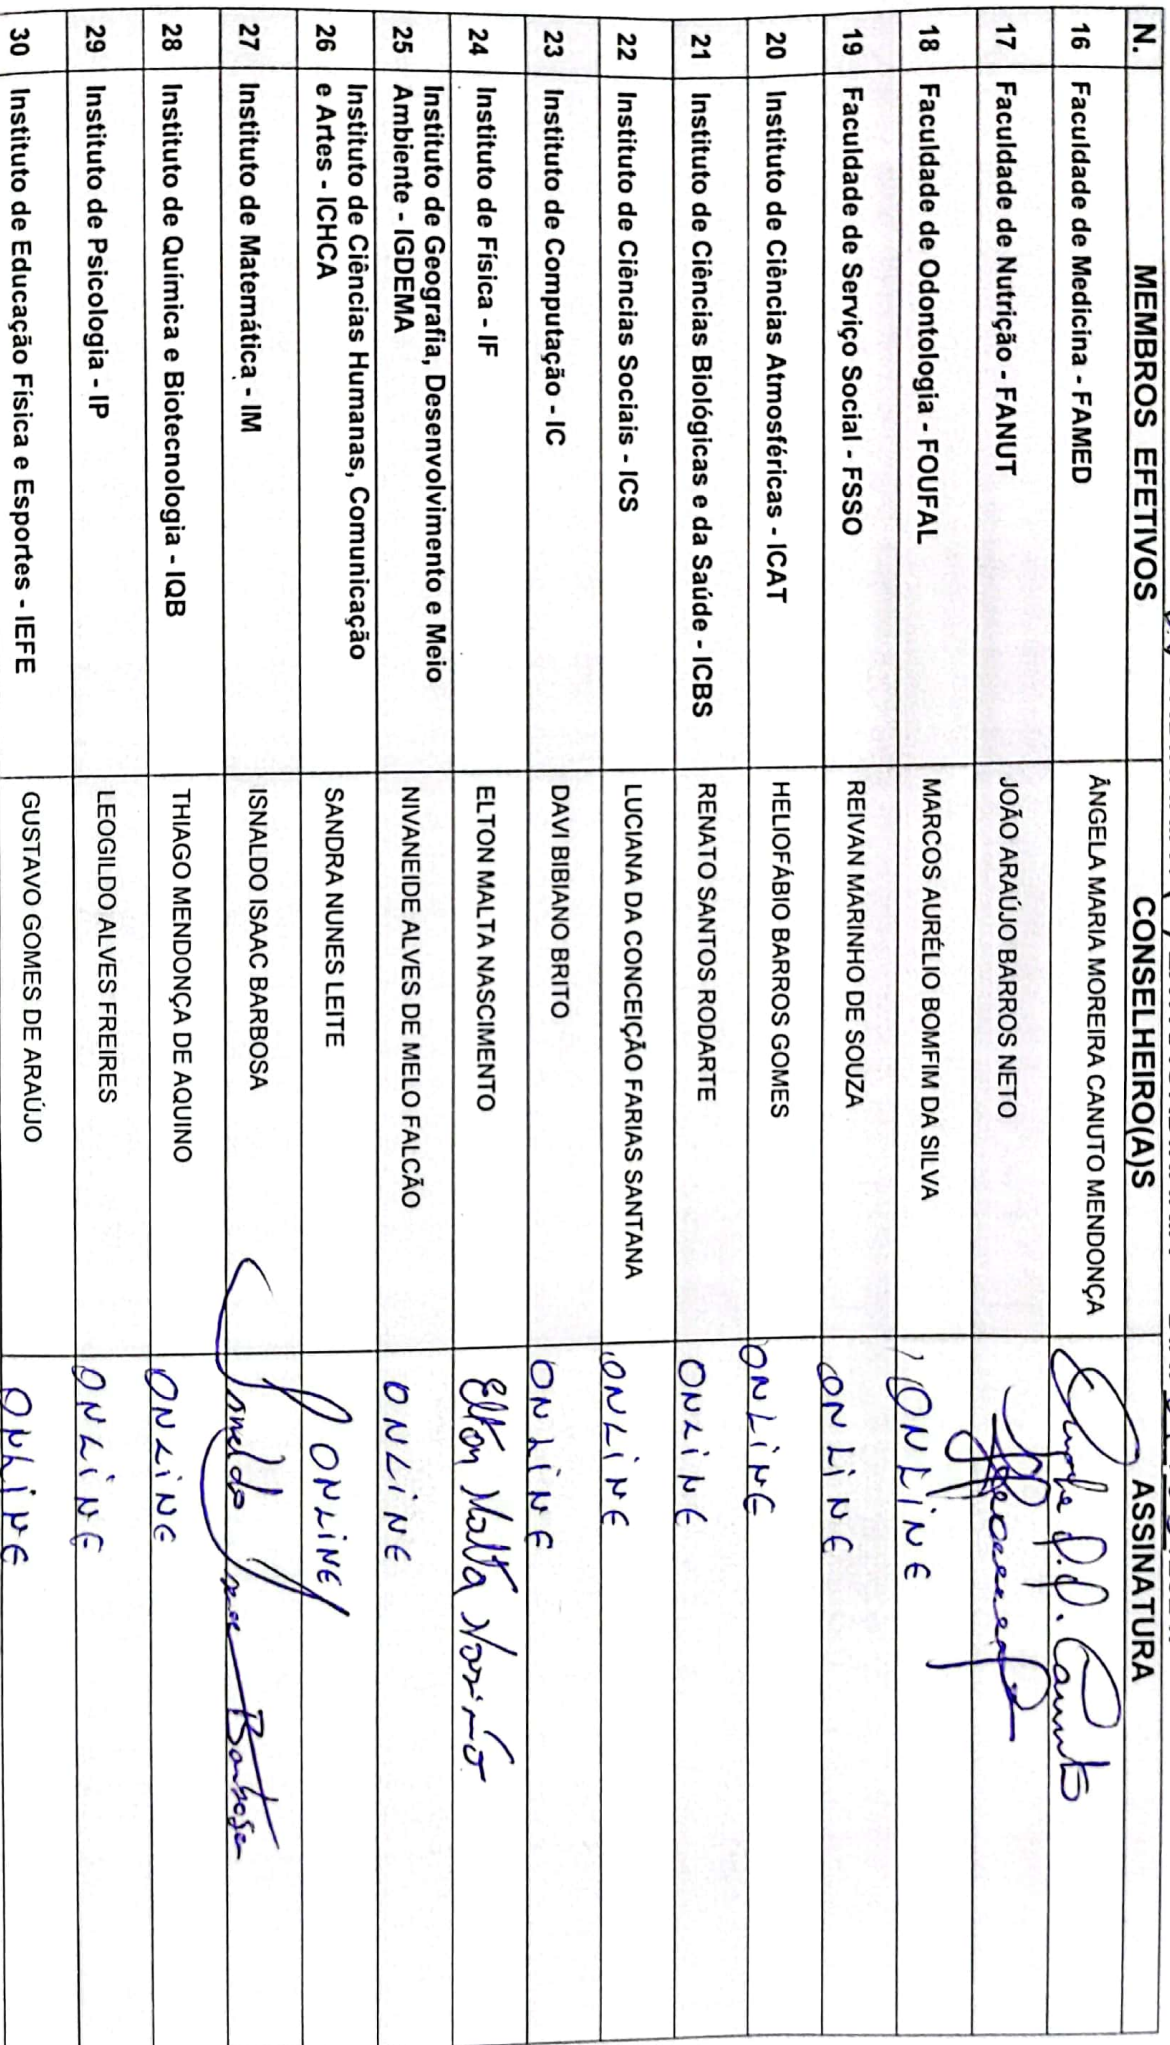 N. MEMBROS EFETIVOS CONSELHEIRO(A)S ASSINATURA
16 Faculdade de Medicina - FAMED ÂNGELA MARIA MOREIRA CANUTO MENDONÇA Canuto
17 Faculdade de Nutrição - FANUT JOÃO ARAÚJO BARROS NETO
18 Faculdade de Odontologia - FOUFAL MARCOS AURÉLIO BOMFIM DA SILVA ONLINE
19 Faculdade de Serviço Social - FSSO REIVAN MARINHO DE SOUZA ONLINE
20 Instituto de Ciências Atmosféricas - ICAT HELIOFÁBIO BARROS GOMES ONLINE
21 Instituto de Ciências Biológicas e da Saúde - ICBS RENATO SANTOS RODARTE ONLINE
22 Instituto de Ciências Sociais - ICS LUCIANA DA CONCEIÇÃO FARIAS SANTANA ONLINE
23 Instituto de Computação - IC DAVI BIBIANO BRITO ONLINE
24 Instituto de Física - IF ELTON MALTA NASCIMENTO Elton Malta
25 Instituto de Geografia, Desenvolvimento e Meio
Ambiente - IGDEMA NIVANEIDE ALVES DE MELO FALCÃO ONLINE
26 Instituto de Ciências Humanas, Comunicação
e Artes - ICHCA SANDRA NUNES LEITE ONLINE
27 Instituto de Matemática - IM ISNALDO ISAAC BARBOSA Isnaldo Isaac Barbosa
28 Instituto de Química e Biotecnologia - IQB THIAGO MENDONÇA DE AQUINO ONLINE
29 Instituto de Psicologia - IP LEOGILDO ALVES FREIRES ONLINE
30 Instituto de Educação Física e Esportes - IEFE GUSTAVO GOMES DE ARAÚJO ONLINE